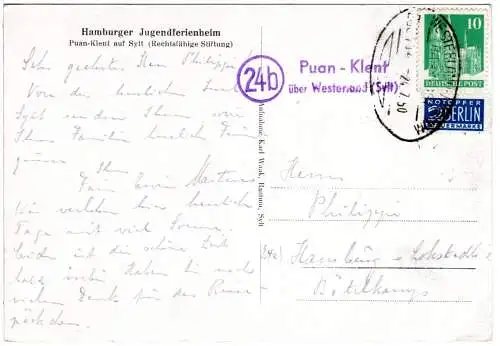 Hamburger Jugendferienheim
Puan-Klent auf Sylt (Rechtsfähige Stiftung)
Sehr geehrter Herr Philippi!
Von der herrlichen Insel
Sylt senden Ihnen und
Ihrer Familie herzliche
Grüße
Ihre
Fam. Martens
Wir verleben hier herrliche
Tage mit viel Sonne.
Leider ist die schöne Zeit
bald vorbei. Haben Sie noch
vielen Dank für das
Aufnahme: Karl Waak, Rantum, Sylt
24b
Puan - Klent
über Westerland (Sylt)
WESTERLAND
24.7.50
10
DEUTSCHE POST
NOTOPFER
2 BERLIN
STEUERMARKE
Herrn
Philippi
(24a) Hamburg - Lokstedt
Bötelkamp